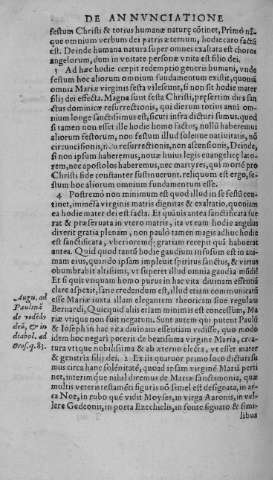 DE ANNVNCIATIONE
festum Christi & totius humanæ naturæ cõtinet, Primò nã-
que omnium verbum dei patris æternum, hodie caro factũ
est. Deinde humana natura super omnes exaltata est choros
angelorum, cum in vnitate personæ vnita est filio dei.
3 Ad hæc hodie cœpit redemptio generis humani, vnde
festum hoc aliorum omnium fundamentum existit, quoniã
omnia Mariæ virginis festa vilesunt, si non sit hodie mater
filij dei effecta. Magna sunt festa Christi, presertim dies san
ctus dominicæ resurrectionis, qui dierum totius anni om-
nium longè sanctissimus est, sicuti infrà dicturi sumus. quod
si tamen non esset ille hodie homo factus, nullũ haberemus
aliorum festorum, non festum illud solenne natiuitatis, nõ
circuncisionis, nõ resurrectionis, non ascensionis, Deinde,
si non ipsum haberemus, noua huius legis euangelicæ late-
rem, nec apostolos haberemus, nec martyres, qui morté pro
Christi fide constanter sustinuerunt. reliquum est ergo, fe-
stum hoc aliorum omnium fundamentum esse.
4 Postremò non minimum est quod illud in se festũ con-
tinet, immẽsa virginis matris dignitas & exaltatio, quoniam
ea hodie mater dei est facta. Et quãuis antea sanctificata fue
rat & præseruata in vtero matris, ita vt eam hodie angelus
diuenit gratia plenam, non paulò tamen magis adhuc hodie
est sanctificata, vberioremq; gratiam recepit quà habuerat
antea. Quid quod tantò hodie gaudium infusum est in ani-
mam eius, quando ipsam impleuit spiritus sanctus, & virtus
obumbrabit altissimi, vt superet illud omnia gaudia mũdi?
Et si quis vnquam homo purus in hac vita diuinam essentiã
clarè aspexit, sanè credendum est, illud etiam commune
Augu. ad esse Mariæ iuxta illam elegantem theoricam siue regulam
Paulinã Bernardi, Quicquid alijs etiam minimis est concessum, Ma
de vidẽdo riæ vtique non fuit negatum. Sunt autem qui putent Paulũ
deũ, & in & Ioseph in hac vita diuinam essentiam vidisse, quo modo
dialog. ad idem hoc negari poterit de beatissima virgine Maria, crea-
Oros. q. 83. tura vtique nobilissima & ab æterno electa, vt esset mater
& genitrix filij dei. 2 Ex ijs quatuor primo loco dicturi su
mus circa hanc solẽnitatẽ, quod terram virginẽ Mariã perti
net, interimque nihil diremus de Mariæ sanctimonia, quæ
multis veteris testamẽti figuris nõ semel est designata, in ar-
ca Noe, in rubo quẽ vidit Moyses, in virga Aaronis, in vel-
lere Gedeonis, in porta Ezechielis, in fonte signato & simi-
libus